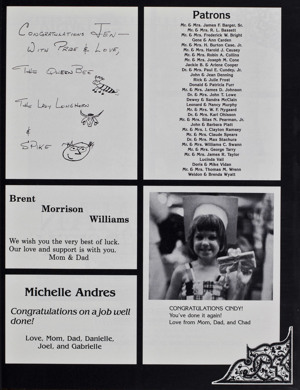 Congratulations Jen-
With Pride & Love,
The Queen Bee
The Lady Leushen
&
Spike
Patrons
Mr. & Mrs. James F. Barger, Sr.
Mr. & Mrs. R. L. Bessett
Mr. & Mrs. Frederick W. Bright
Gene & Ann Carden
Mr. & Mrs. H. Burton Cass, Jr.
Mr. & Mrs. Harold J. Causey
Mr. & Mrs. Robin A. Collins
Mr. & Mrs. Joseph M. Cone
Jackie B. & Arlene Cooper
Dr. & Mrs. Paul E. Cundey, Jr.
John & Joan Denning
Rick & Julie Frost
Donald & Patricia Furr
Mr. & Mrs. James D. Johnson
Dr. & Mrs. John T. Lowe
Dewey & Sandra McClain
Leonard & Nancy Murphy
Mr. & Mrs. W. F. Nygaard
Dr. & Mrs. Karl Ohlsson
Mr. & Mrs. Silas N. Pearman, Jr.
John & Barbara Platt
Mr. & Mrs. I. Clayton Ramsey
Mr. & Mrs. Claude Spears
Dr. & Mrs. Max Stachura
Mr. & Mrs. Williams C. Swaint
Mr. & Mrs. George Tarry
Mr. & Mrs. James R. Taylor
Lucinda Vail
Doris & Mike Vidan
Mr. & Mrs. Thomas M. Wrenn
Weldon & Brenda Wyatt
Brent
Morrison
Williams
We wish you the very best of luck.
Our love and support is with you.
Mom & Dad
Michelle Andres
Congratulations on a job well
done!
Love, Mom, Dad, Danielle,
Joel, and Gabrielle
CONGRATULATIONS CINDY!
You've done it again!
Love from Mom, Dad, and Chad